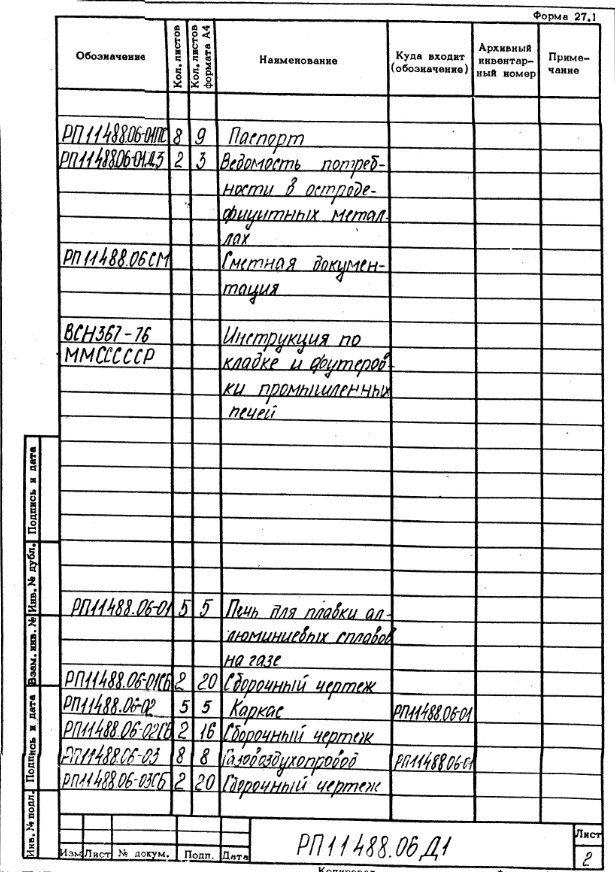 Форма 27.1
Обозначение Кол. листов Кол. листов формата А4 Наименование Куда входит (обозначение) Архивный инвентарный номер Примечание
РП11488.06-01ПС 8 9 Паспорт
РП11488.06-01Д3 2 3 Ведомость потреб-
ности в остроде-
фицитных метал-
лах
РП11488.06СМ Сметная докумен-
тация
ВСН367-76 Инструкция по
ММСССССР кладке и футеров
ки промышленных
печей
РП11488.06-01 5 5 Печь для плавки ал-
люминиевых сплавов
на газе
РП11488.06-01СБ 2 20 Сборочный чертеж
РП11488.06-02 5 5 Каркас РП11488.06-01
РП11488.06-02СБ 2 16 Сборочный чертеж
РП11488.06-03 8 8 Газовоздухопровод РП11488.06-01
РП11488.06-03СБ 2 20 Сборочный чертеж
Инв. № подл. Подпись и дата Взам. инв. № Инв. № дубл. Подпись и дата
РП11488.06Д1
Лист
2
Изм Лист № докум. Подп. Дата
Копировал